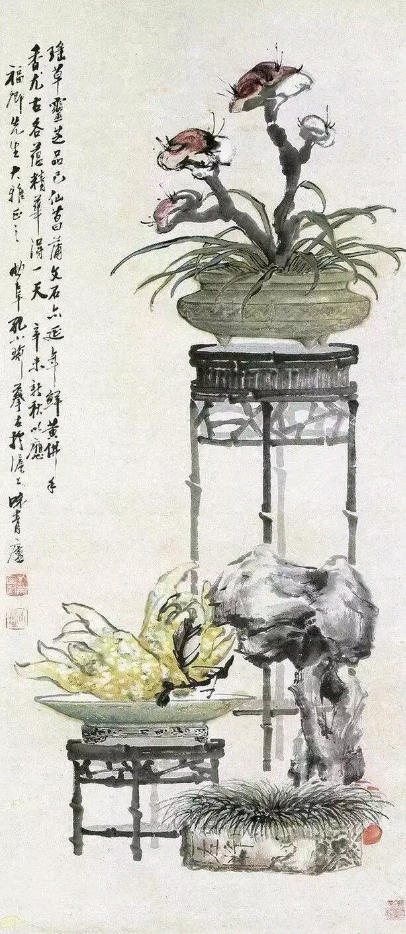 瑤草靈芝品已仙菖蒲文石亦延年鮮黃佛手
香尤古各蘊精華得一天 辛未新秋以應
福卿先生大雅正之 曲阜孔小瑜摹古於滬上味青廬